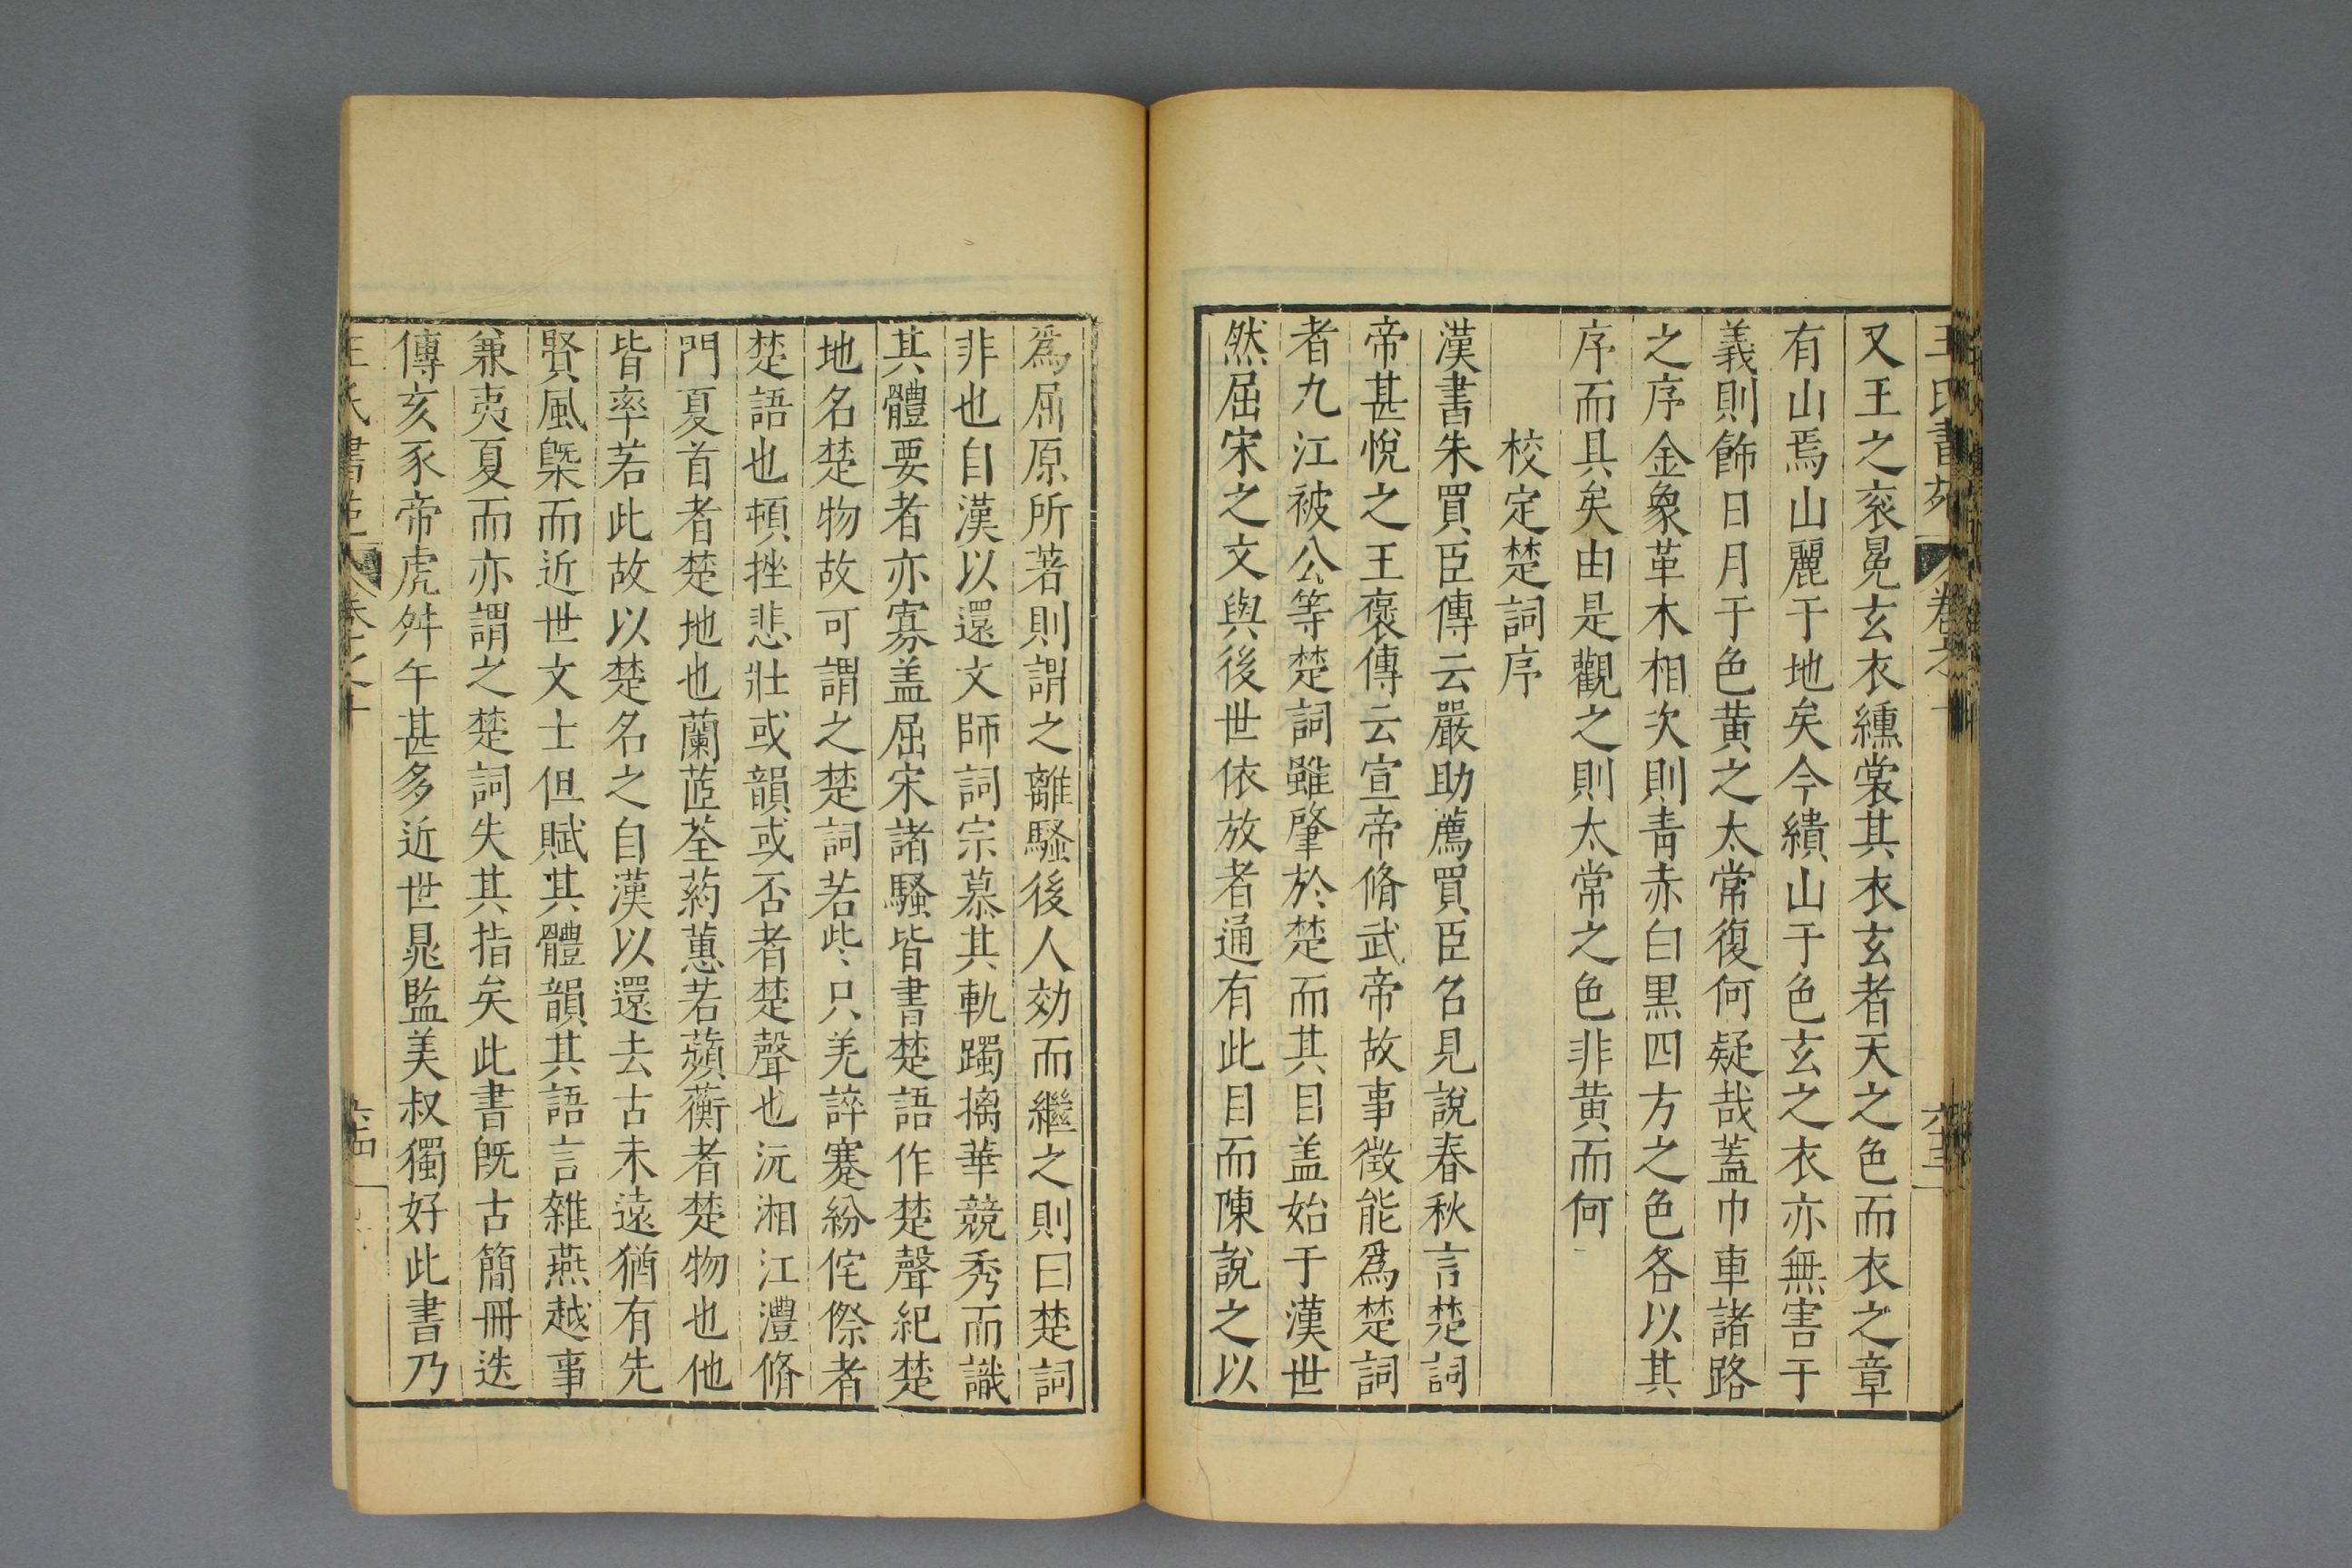 又王之衮冕玄衣纁裳其衣玄者天之色而衣之章
有山焉山麗于地矣今繢山于色玄之衣亦無害于
義則飾日月于色黄之太常復何疑哉蓋巾車諸路
之序金象革木相次則青赤白黒四方之色各以其
序而具矣由是觀之則太常之色非黄而何
校定楚詞序
漢書朱買臣傳云嚴助薦買臣召見說春秋言楚詞
帝甚悅之王褒傳云宣帝脩武帝故事徴能爲楚詞
者九江被公等楚詞雖肇於楚而其目盖始于漢世
然屈宋之文與後世依放者通有此目而陳說之以
爲屈原所著則謂之離騷後人効而繼之則曰楚詞
非也自漢以還文師詞宗慕其軌躅摛華競秀而識
其體要者亦寡盖屈宋諸騷皆書楚語作楚聲紀楚
地名楚物故可謂之楚詞若些只羌誶蹇紛侘傺者
楚語也頓挫悲壯或韻或否者楚聲也沅湘江澧脩
門夏首者楚地也蘭茝荃葯蕙若蘋蘅者楚物也他
皆率若此故以楚名之自漢以還去古未遠猶有先
賢風槩而近世文士但賦其體韻其語言雜燕越事
兼夷夏而亦謂之楚詞失其指矣此書旣古簡冊迭
傳亥豕帝虎舛午甚多近世晁監美叔獨好此書乃